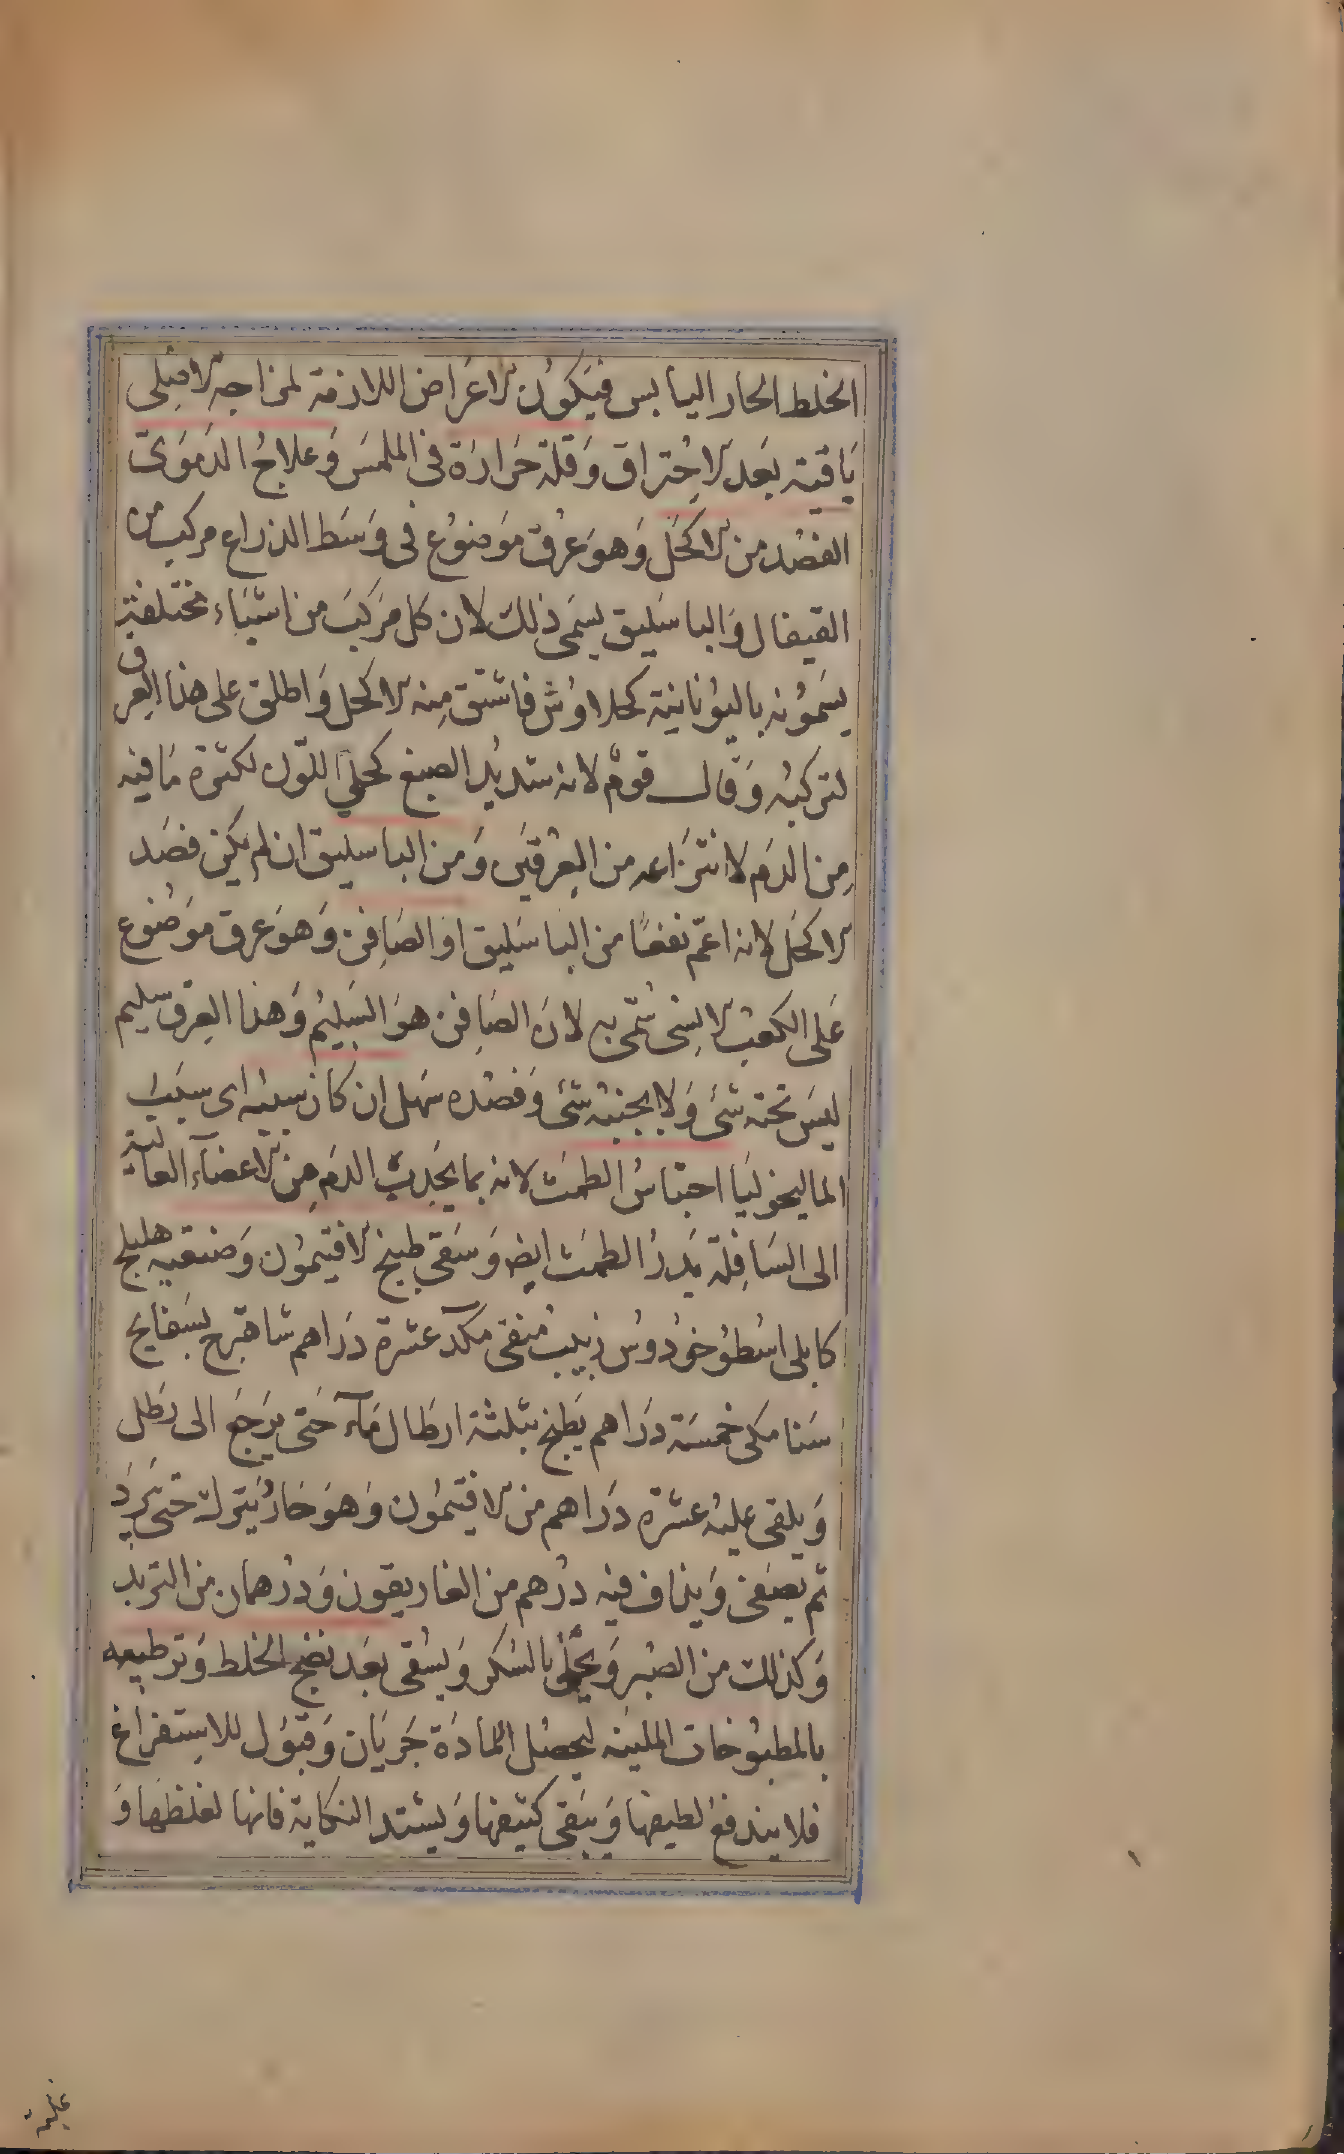 الخلط الحار اليابس فيَكوُن الاعَراض اللازمة لمزاجه الاصِلى
بَاقية بعَد الاحِتراق وَقلة حَرارَة فى الملمسَ وَعلاجُ الدمَوىّ
الفصْد من الاكحَل وَهوَ عرْق موَضوُع فى وَسَط الذراع مركب من
القيفال وَالباسَليق يسمَى ذلك لان كل مركبَ من اشيَاء مختلفة
يسَموُنه باليوُنانية كحلاوُش فاشتق مِنه الاكحل وَاطلق على هذا العِرق
لتركبُه وَقال قومْ لانه شديدُ الصبغ كحلىّ اللوّن لكثرة مَا فيه
مِن الدَم لانتزَاعه من العِرْقيَن وَمن الباسليق ان لم يكن فصَد
الاكحَل لانه اعمّ نفعًا من الباسَليق اوَ الصَافِن وَهوَ عرق موَضُوع
عَلى الكعْب الانِسى سُمّى به لانَ الصَافِن هوَ السَليُم وَهذا العِرق سليم
ليسَ تحته شئ وَلا بجنبْه شئَ وَفصْده سَهل ان كان سببُه اى سبَبُ
الماليخوليَا احتباسُ الطمث لانه بما يجَذِبُ الدَم مِن الاعضآء العالية
الى السَافِلة يَدرُ الطمَث ايضا وَسَقى طبيخ الافيتموُن وَصنعَته هليلج
كابلى اسْطوُخوُدوُس زبيبْ مُنقى مكد عشرة دَراهم شاهترج بسَفايج
سَنا مكَى خمسَة دَراهم يَطبخ بثلثة ارطال مَآء حَتى يرَجَع الى رَطل
وَيلقى عليْه عشرة دَراهم من الافيتموُن وَهوَ حَارُ يترك حتى يَبرد
ثم يصَفىَ وَيذاف فيه درْهم من الغاريقون وَدرْهمان من التربد
وَكذلك من الصْبر وَيحُلىّ بالسُكر وَيسْقى بعَد نضج الخلط وَترطيبه
بالمطبوُخات الملينَه ليحصُل للمادَة جَرَيَان وَقبَوُل للاستفرَاغ
فلا يندفعُ لطيفها وَيبَقى كثيفها وَيشتد النكاية فانها لغلظهَا وَ